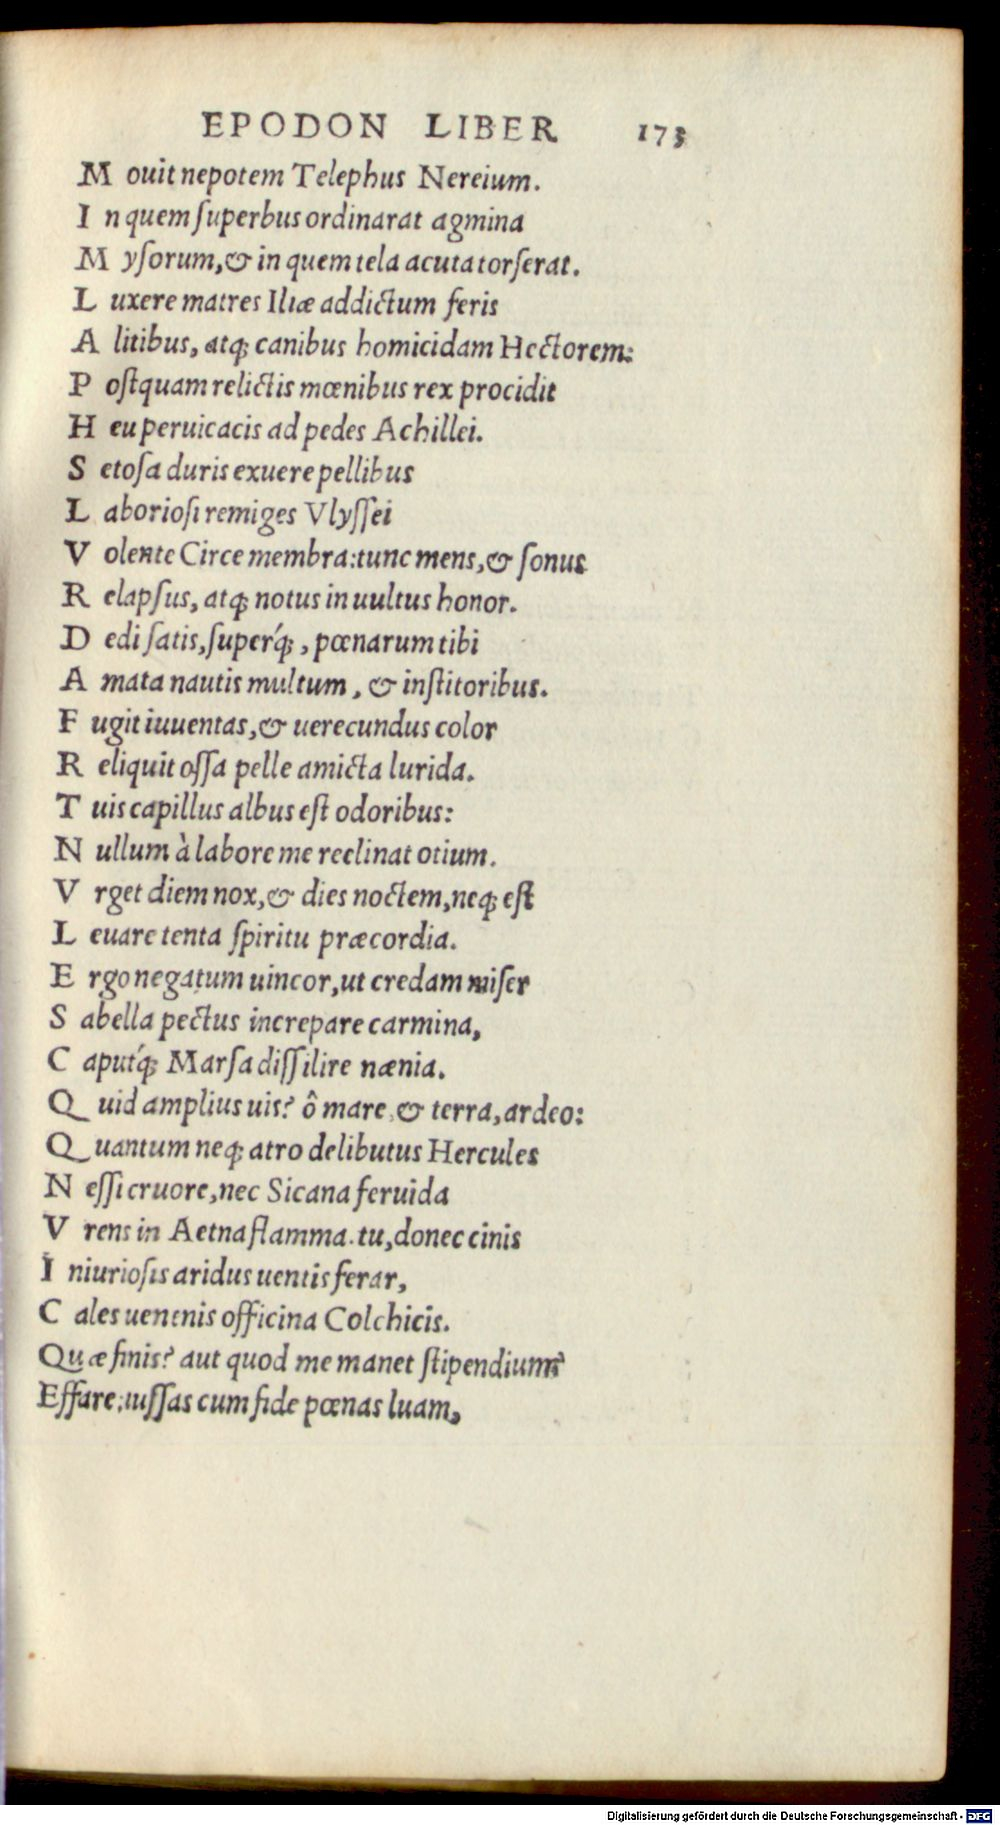 EPODON LIBER 173
M ouit nepotem Telephus Nereium.
I n quem ſuperbus ordinarat agmina
M yſorum, & in quem tela acuta torſerat.
L uxere matres Iliæ addictum feris
A litibus, atq; canibus homicidam Hectorem:
P oſtquam relictis mœnibus rex procidit
H eu peruicacis ad pedes Achillei.
S etoſa duris exuere pellibus
L aborioſi remiges Vlyſſei
V olente Circe membra: tunc mens, & ſonus
R elapſus, atq; notus in uultus honor.
D edi ſatis, ſuperq́;, pœnarum tibi
A mata nautis multum, & inſtitoribus.
F ugit iuuentas, & uerecundus color
R eliquit oſſa pelle amicta lurida.
T uis capillus albus eſt odoribus:
N ullum à labore me reclinat otium.
V rget diem nox, & dies noctem, neq; eſt
L euare tenta ſpiritu præcordia.
E rgo negatum uincor, ut credam miſer
S abella pectus increpare carmina,
C aputq́; Marſa diſſilire nænia.
Q uid amplius uis? ô mare, & terra, ardeo:
Q uantum neq; atro delibutus Hercules
N eſſi cruore, nec Sicana feruida
V rens in Aetna flamma. tu, donec cinis
I niurioſis aridus uentis ferar,
C ales uenenis officina Colchicis.
Quæ finis? aut quod me manet ſtipendium?
Effare: iuſſas cum fide pœnas luam,
Digitalisierung gefördert durch die Deutsche Forschungsgemeinschaft - DFG